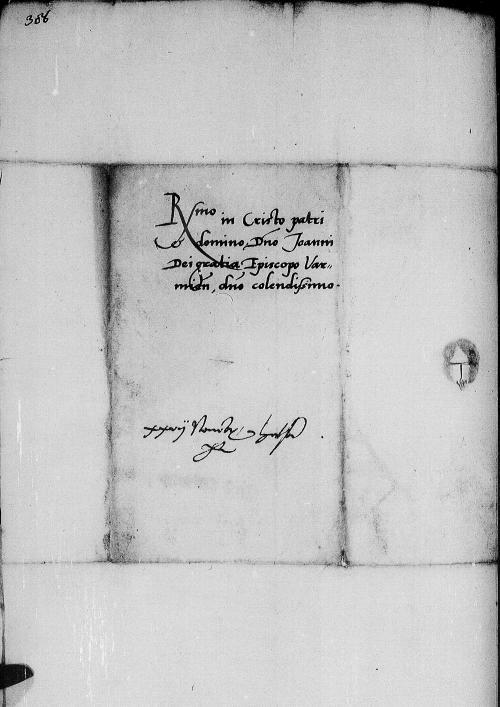 368
Rmo in Cristo patri
et domino, Dno Joanni
Dei gratia Episcopo Var=
mien, dno colendissimo.